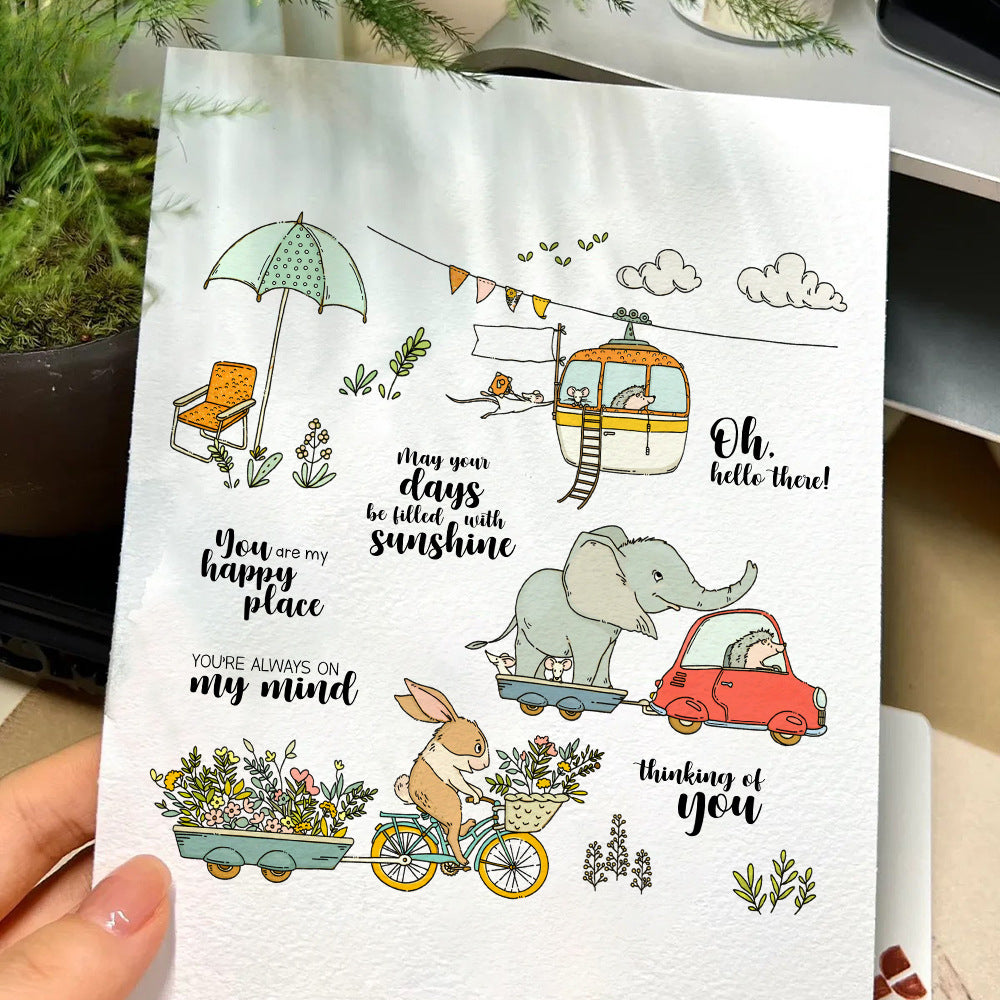 Oh,
hello there!
May your
days
be filled with
sunshine
You are my
happy
place
YOU'RE ALWAYS ON
my mind
thinking of
you